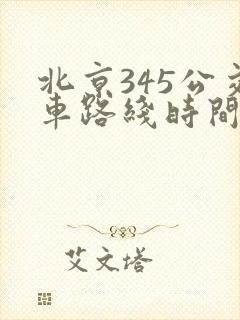 北京345公交
車路綫時間
艾文塔